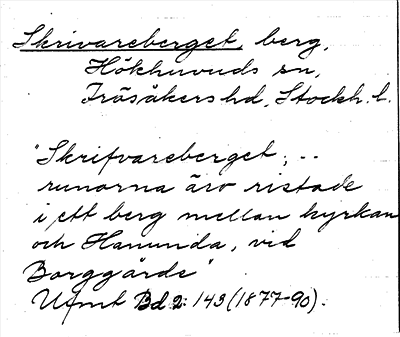 Skrivareberget, berg,
Hökhuvuds sn,
Fräsåkers hd, Stockh. l.
"Skrifvareberget, --
runorna äro ristade
i ett berg mellan kyrkan
och Hanunda, vid
Borggärde"
Ufmt Bd 2: 143 (1877-90).